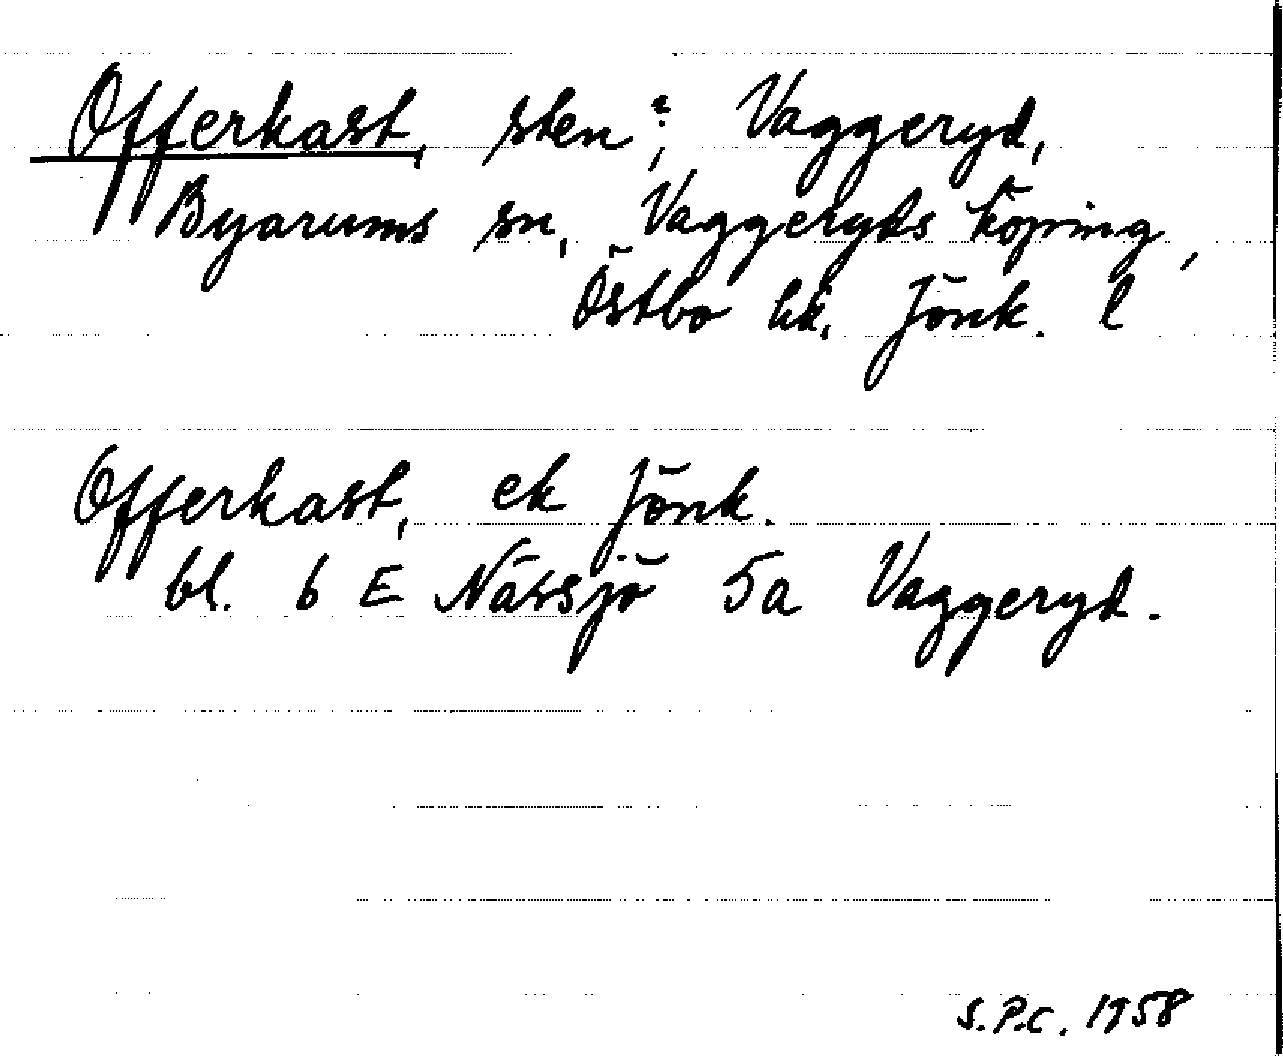 Offerkast, sten?, Vaggeryd,
Byarums sn, Vaggeryds köping,
Östbo hd, Jönk. l
Offerkast, ek Jönk.
bl. 6 E Nässjö 5a Vaggeryd.
S.P.C. 1958